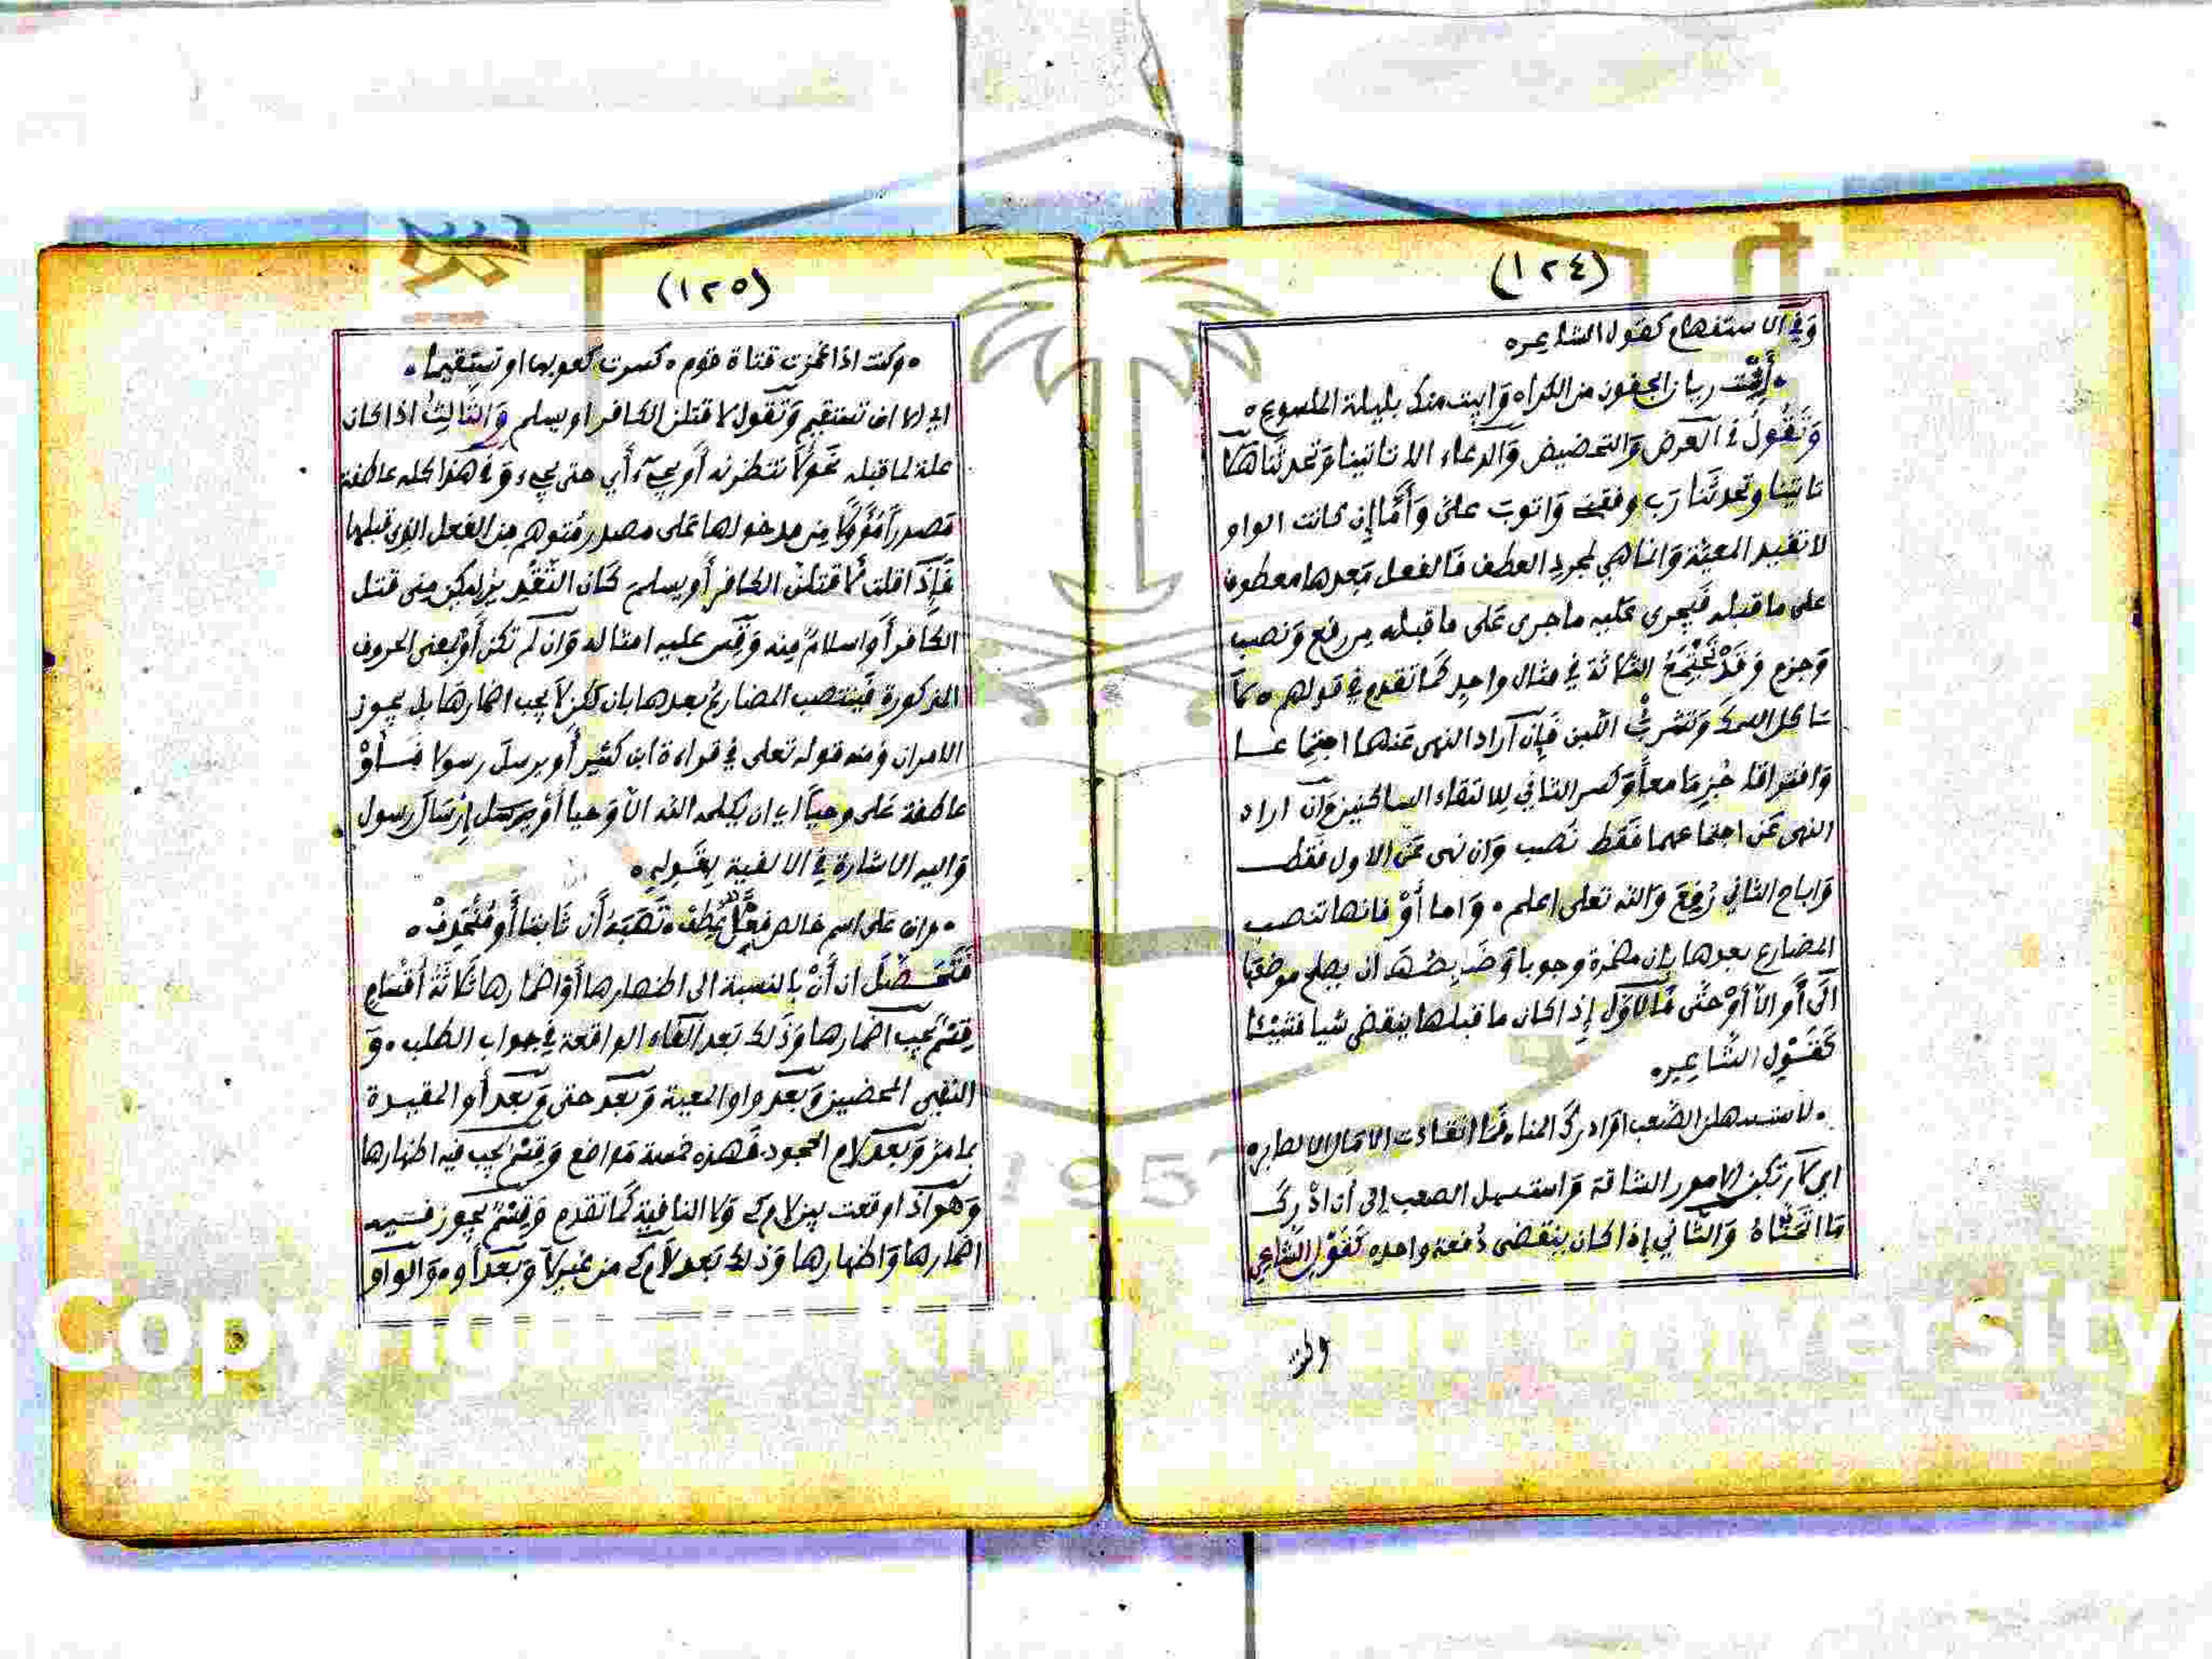 (١٢٤)
وَفِي الاستفهام كقول الشاعر ه
• أتبيت ريان الجفون من الكراه وَابيت منك بليلة الملسوع ه
وَتَقُولُ في العرض وَالتحضيض وَالدعاء الا تاتينا وَتحدثَنا هَلا
تاتينا وتحدثَنا رَب وفقني وَاتوبَ علىّ وَأَمَّا إن كانت الواو
لا تفيد المعيّة وَانما هي لمجرد العطف فَالفعل بَعدها معطوف
على ما قبله فيَجري عَليه ما جرى عَلى ما قبله مِن رفع وَنصب
وَجزم وَقَدْ تَجْتَمِعُ الثلاثة في مثال واحِد كَما تقدم في قولهم ه لاَ
تاكل السمك وَتشرب اللّبن فَإِن آراد النهى عَنهما اجتِماعا
وَافتراقا جُزِمَا معاً وَكسر الثاني لِلالتقاء الساكنين وَان اراد
النهى عَن اجتماعهما فَقَط نَصب وَان نهى عَن الاول فقط
وَاباح الثاني رُفِعَ وَالله تعلى اعلم • وَاما أَوْ فانها تنصب
المضارع بعدها بان مضمرة وجوبا وَضَابِطُهَا ان يصلح موضعَها
الَى أَو الاّ أَوْ حَتَّى فَالاوّل إِذ اكان ما قبلها ينقضى شيا فَشَيْئا
كَقَوْلِ الشَّاعِرِ ه
• لاستسهلن الصَّعب اوَادرك المنا ه فَما انقادت الامَال الا لصابر ه
اى لاَرتكبن الامور الشاقة وَاستسهل الصعب إِلى أَن ادْرك
مَا اتَمَنَّاهُ وَالثَّاني إِذا كان ينقضى دُفعة واحده كَقَوْلِ الشَّاعِر
وكنت
(١٢٥)
• وكنت اذا غمزت قناة قوم • كسرت كعوبها او تستقيما •
اى الا ان تستقيم وَتَقول لا قتلن الكافر او يسلم وَالثَّالِثُ اذا كان
علة لما قبله نحو لاَ نتظرنه أَو يجيءَ أَي حتى يجيء وَفى هَذا كله عاطفة
مَصدراً مُؤَولاً مِن مدخولها عَلى مصدر مُتوهم مِن الفعل الذي قبلها
فَإِذَا قلت لاَ قتلنّ الكافر أَو يسلمَ كَان التَّقْدِير ليكن مِنى قتل
الكَافر أَو اسلامٌ مِنه وَقِس عليه امثاله وَان لَم تكن أَوْ بمعنى الحروف
المذكورة فَينتصب المضارعُ بعدها بان لكن لاَ يجب اضمارهَا بل يجوز
الامران وَمنه قوله تعلى في قراءة ابن كثير أَو يرسلَ رسولا فَأَوْ
عاطفة عَلى وحياً اى ان يكلمه الله الاّ وَحيا أَوْ يرسَل إِرْسَالَ رسول
وَاليه الاشارة في الالفية بِقَولِهِ ه
• وان على اسم خالص فعلٌ عُطِف • تَنْصِبُهُ أَن ثَابِتا أَو مُنْحَذِفْ •
فَتَحَصَّلَ ان أَنْ بالنسبة الى اظهارها أَوْ اضمارها ثلاثَةُ أَقْسَامٍ
قِسْمٌ يجب اضمارها وَذَلك بَعد الفَاء الواقعة في جواب الطلب • وَ
النفى المحضين وَبعد واو المعية وَبَعد حتى وَبَعد أَو المقيدة
بما مرّ وَبَعد لام الجحود فَهذه خمسة مَواضع وَقِسْمٌ يجب فيه اظهارها
وَهو اذا وقعت بين لام كى وَلا النافيةِ كَما تقدم وَقِسْمٌ يجوز فيه
اضمارها وَاظهارها وَذلك بَعد لاَم كى من غير لاَ وَبَعد أو • وَالواو
Copyright © King Saud University
1957